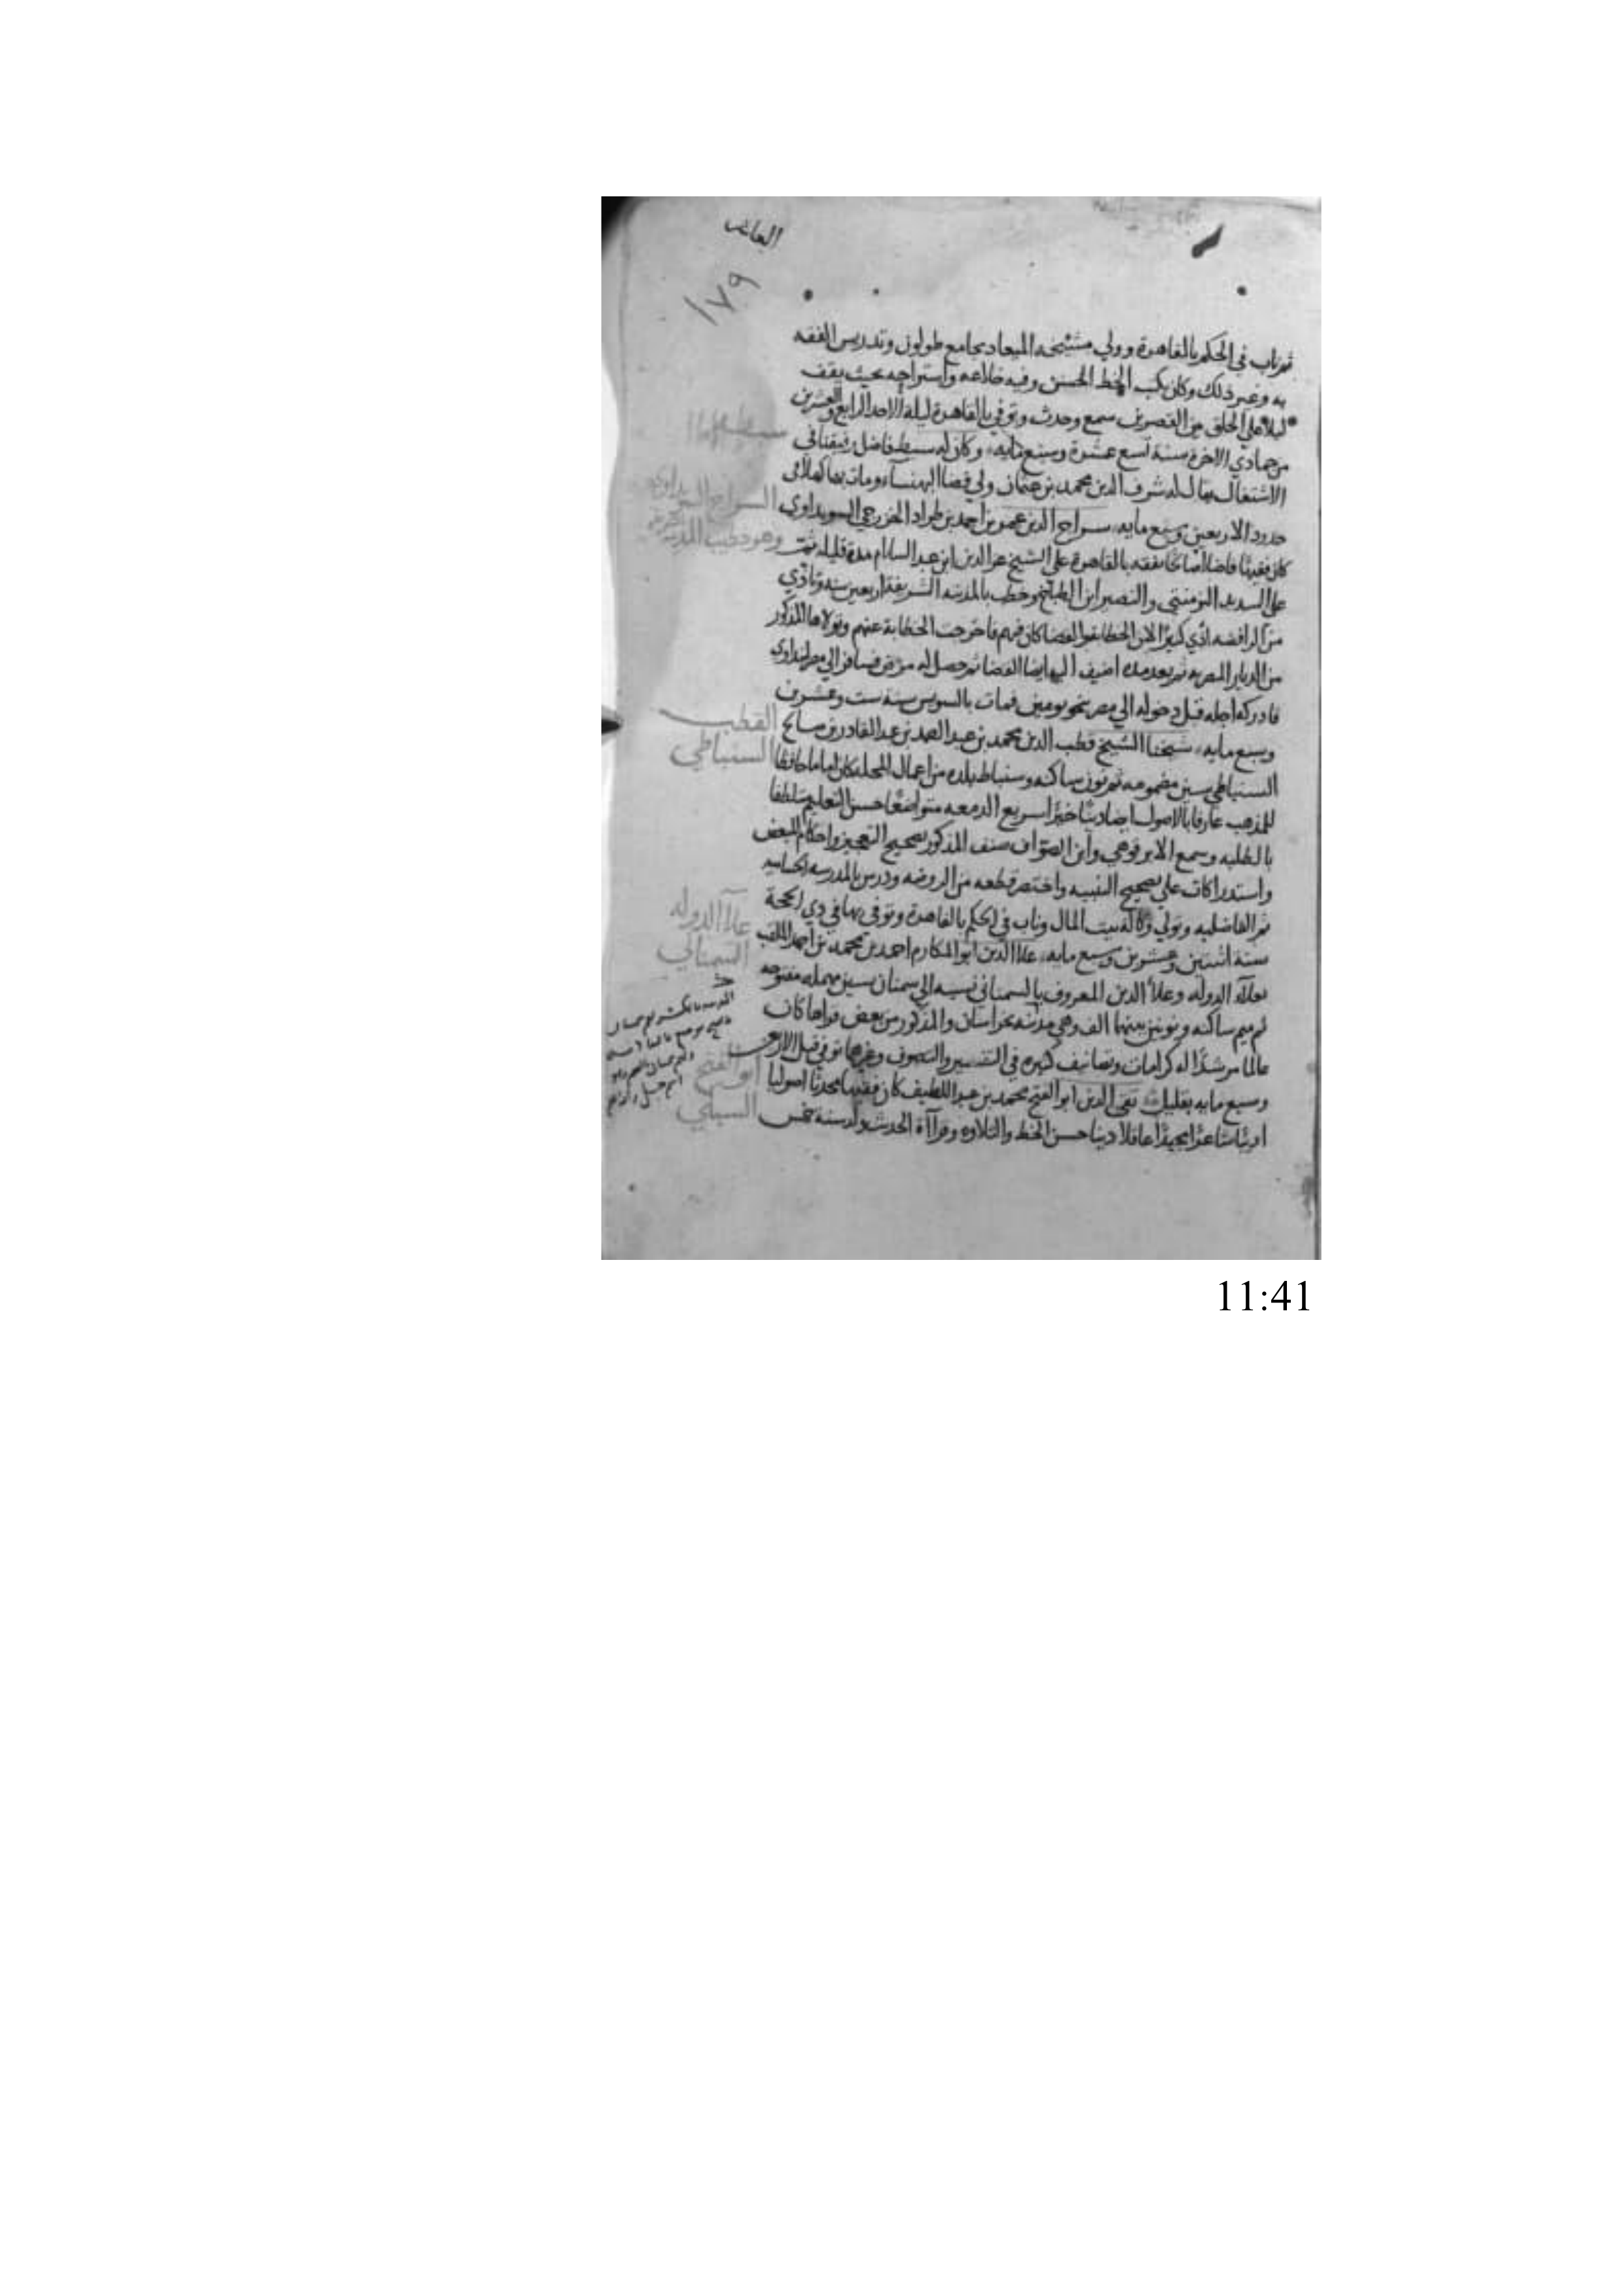 العاشر
١٧٩
ثم ناب في الحكم بالقاهرة وولي مشيخه الميعاد بجامع طولون وتدريس الفقه
به وغير ذلك وكان يكتب الخط الحسن وفيه خلاعه واستراحه بحيث يقف
ليلا علي الحلق بين القصرين سمع وحدث وتوفي بالقاهرة ليلة الاحد الرابع والعشرين
من جمادي الاخرة سنة تسع عشرة وسبع مايه وكان له سبط فاضل رفيقنا في
الاشتغال يقال له شرف الدين محمد بن عثمان ولي قضا البهنسا ومات بها كهلا في
حدود الاربعين وسبع مايه سراج الدين عمر بن احمد بن طراد الخزرجي السويداوي
كان فقيها فاضلا صالحا تفقه بالقاهرة علي الشيخ عز الدين ابن عبد السلام مدة قليله ثم
علي السديد التزمنتي والنصير ابن الطباخ وخطب بالمدينه الشريفة اربعين سنه وتاذي
من الرافضه اذي كثيرا لان الخطابه والقضا كان فيهم فاخرجت الخطابة عنهم وتولاها المذكور
من الديار المصريه ثم بعد مده اضيف اليه ايضا القضا ثم حصل له مرض فسافر الي مصر ليتداوي
فادركه اجله قبل دخوله الي مصر بنحو يومين فمات بالسويس سنة ست وعشرين
وسبع مايه شيخنا الشيخ قطب الدين محمد بن عبد الصمد بن عبد القادر بن صالح
السنباطي بسين مضمومه ثم نون ساكنه وسنباط بلده من اعمال المحله كان اماما حافظا
للمذهب عارفا بالاصول ايضا دينا خيرا سريع الدمعه متواضعا حسن التعليم متلطفا
بالطلبه وسمع الابرقوهي وابن الصواف صنف المذكور تصحيح التعجيز واحكام المبعض
واستدراكات علي تصحيح التنبيه واختصر قطعه من الروضه ودرس بالمدرسه الحساميه
ثم الفاضليه وتولي وكالة بيت المال وناب في الحكم بالقاهرة وتوفي بها في ذي الحجة
سنة اثنتين وعشرين وسبع مايه علا الدين ابو المكارم احمد بن محمد بن احمد الملقب
بعلاء الدوله وعلا الدين المعروف بالسمناني نسبه الي سمنان بسين مهمله مفتوحه
ثم ميم ساكنه ونونين بينهما الف وهي مدينه بخراسان والمذكور من بعض قراها كان
عالما مرشدا له كرامات وتصانيف كثيره في التفسير والتصوف وغيرهما توفي قبل الاربعين
وسبع مايه بقليل تقي الدين ابو الفتح محمد بن عبد اللطيف كان فقيها محدثا اصوليا
اديبا شاعرا مجيدا عاقلا دينا حسن الخط والتلاوه وقرآة الحديث ولد سنه خمس
السراج
وهو خطيب المدينه
القطب
السنباطي
علا الدوله
السمناني
ابو الفتح
السبكي
11:41